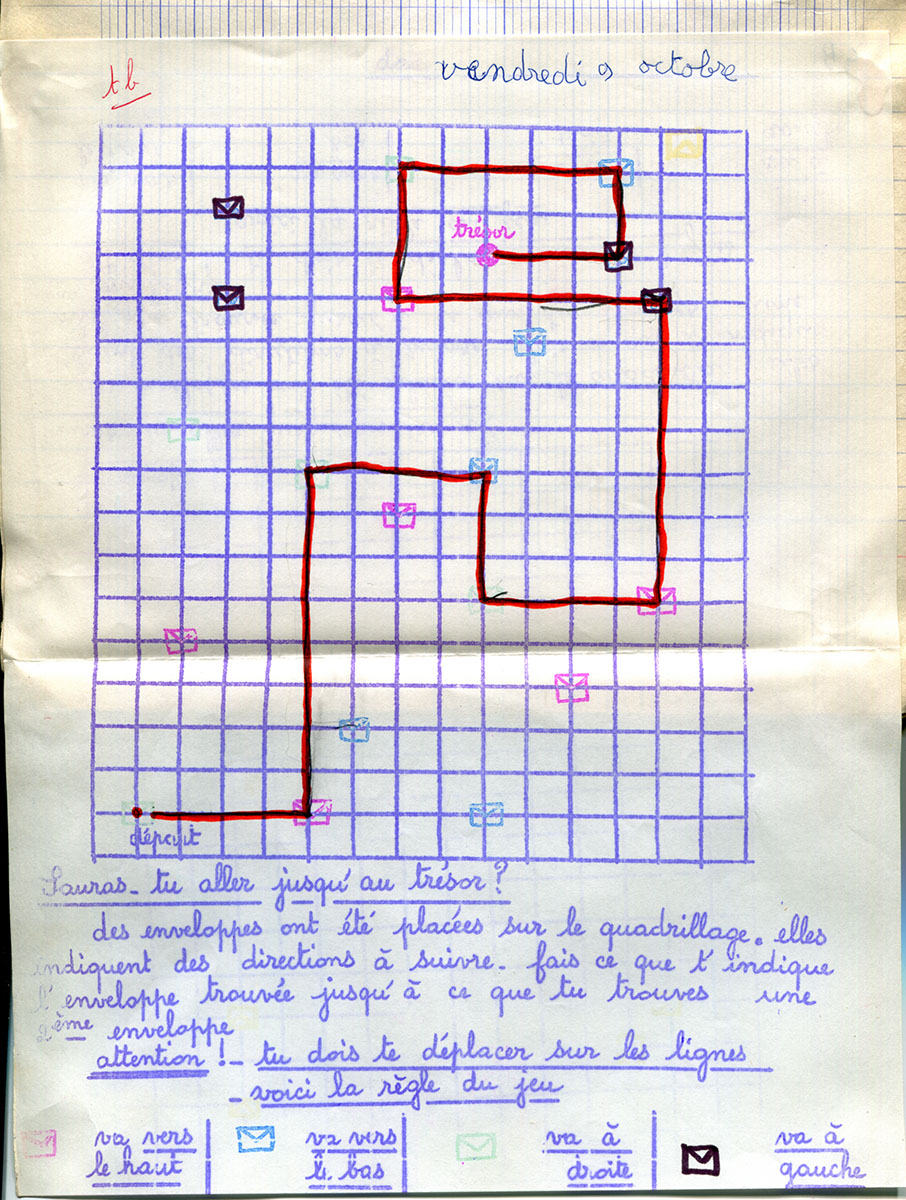 vendredi 9 octobre
tb
trésor
départ
Sauras-tu aller jusqu'au trésor?
des enveloppes ont été placées sur le quadrillage. elles
indiquent des directions à suivre. fais ce que t'indique
l'enveloppe trouvée jusqu'à ce que tu trouves une
2ème enveloppe
attention! - tu dois te déplacer sur les lignes
- voici la règle du jeu
va vers
le haut
va vers
le bas
va à
droite
va à
gauche